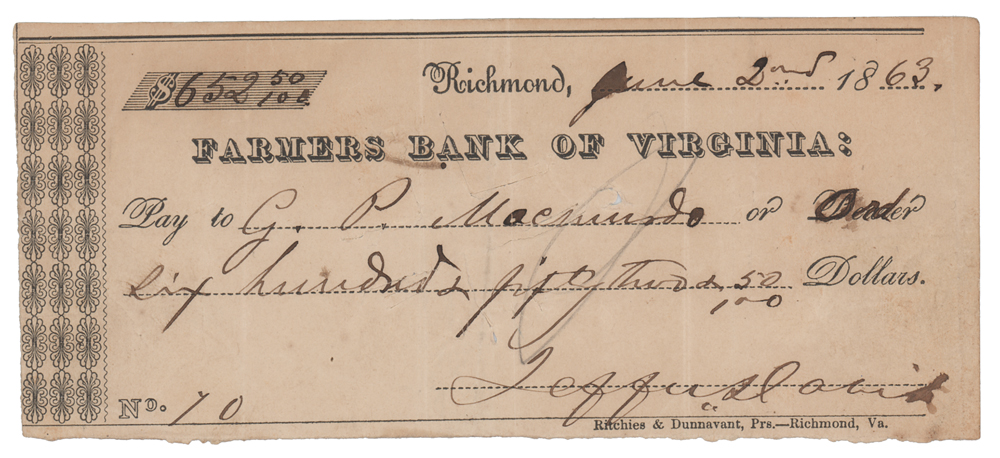 $652 50/100
Richmond, June 2nd 1863.
FARMERS BANK OF VIRGINIA:
Pay to G. P. Macmurdo or Order
Six hundred fifty two 50/100 Dollars.
Jeffn Davis
No. 70
Ritchies & Dunnavant, Prs.—Richmond, Va.